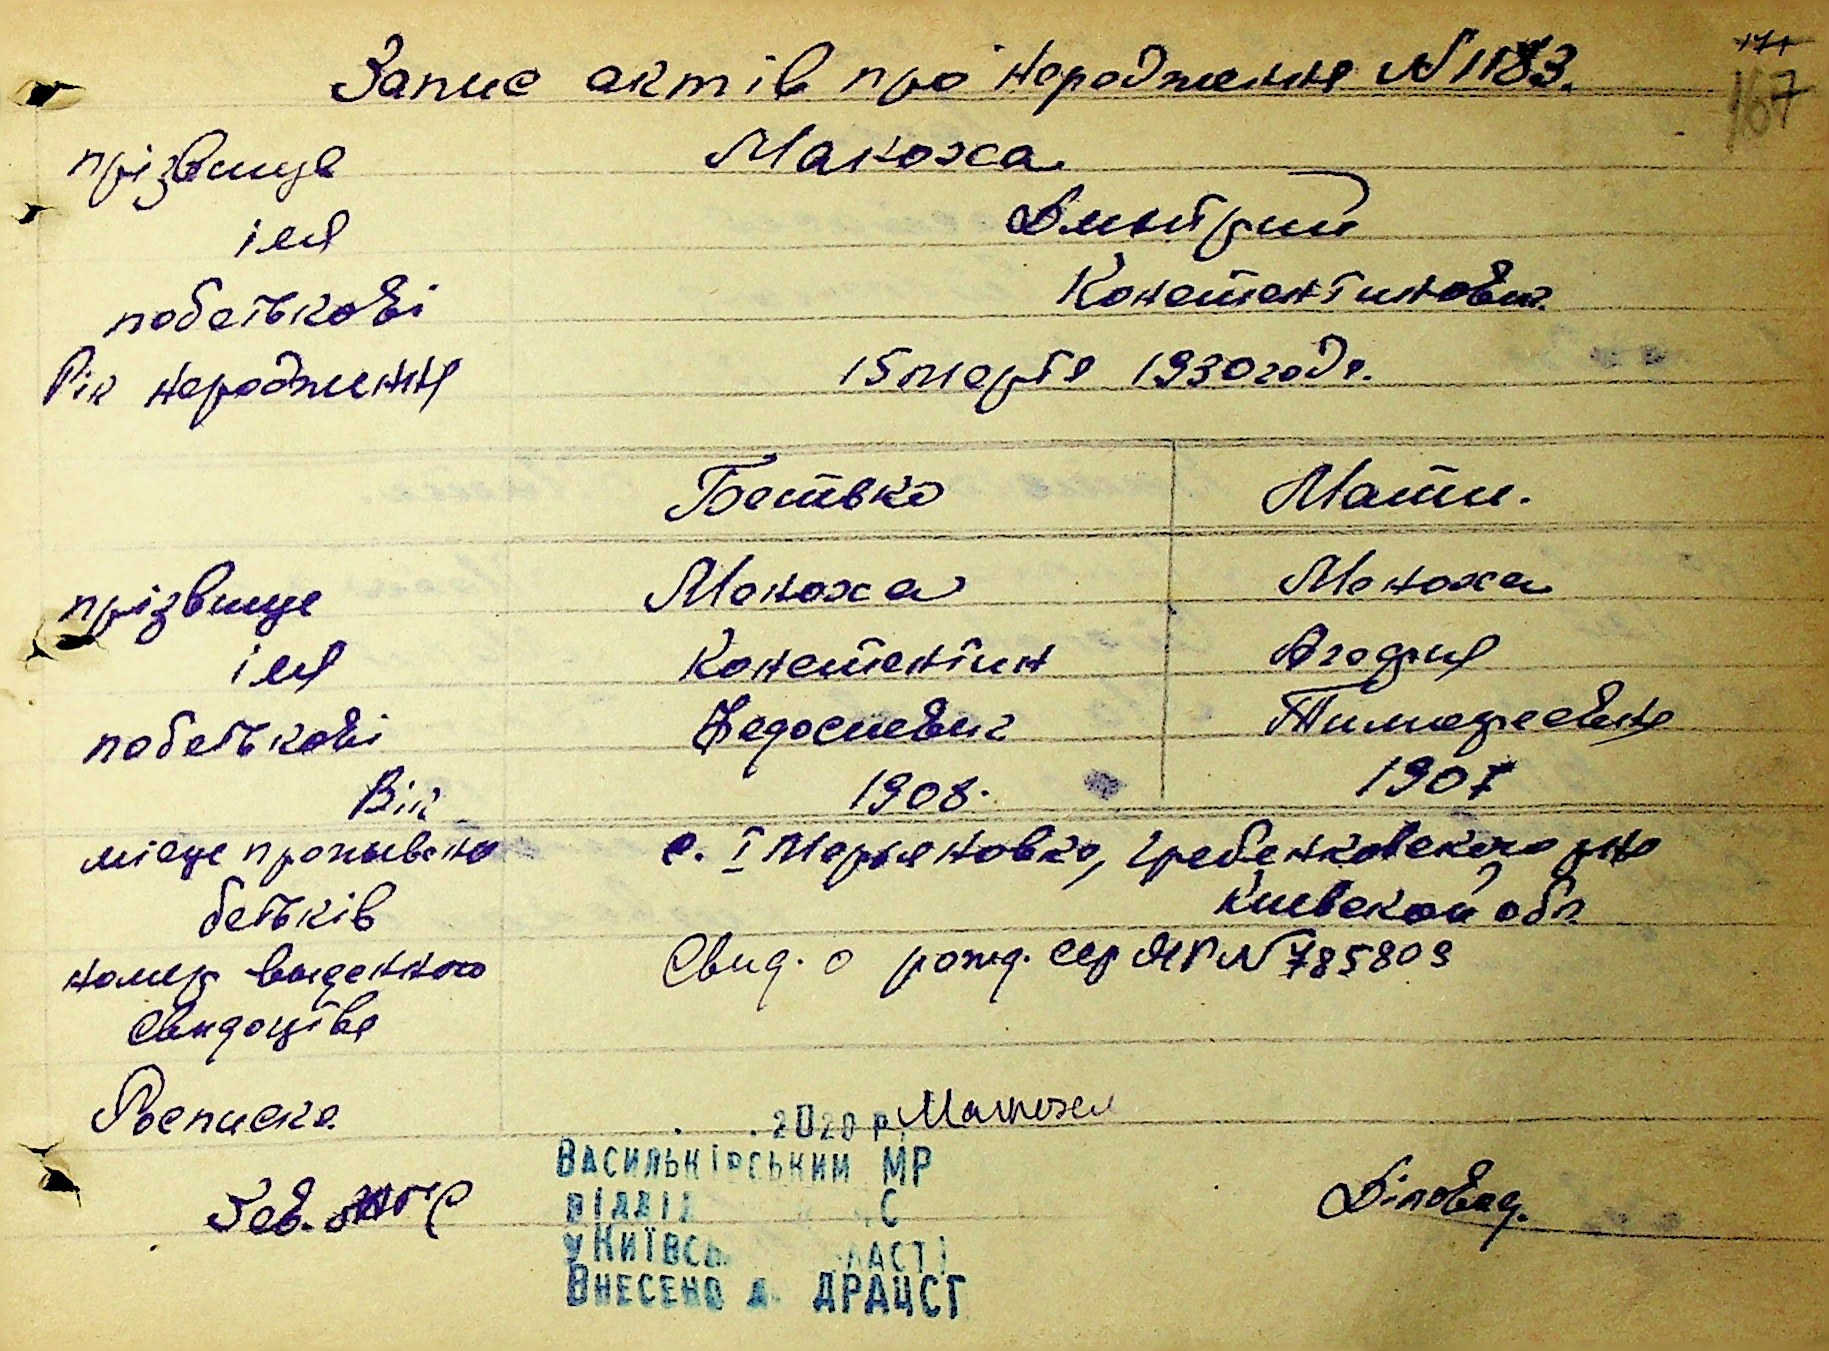 Запис актів про народження N 1183.
167
прізвище Макоха
імя Дмитрий
побатькові Константинович
Рік народження 15 марта 1930 года.
Батько Мати.
прізвище Макоха Макоха
імя Константин Агафия
побатькові Федосиевич Тимофеевна
Вік 1908. 1907
місце проживана с. І Марьяновка, Гребенковского р-на
батьків Киевской обл
номер выданного Свид. о рожд. сер ЯР N 785809
Свидоцтва
Росписка Макоха
2020 р.
Васильківський МР
Зав. ЗАГС
відділ С
у Київс ласті
Внесено д ДРАЦСГ